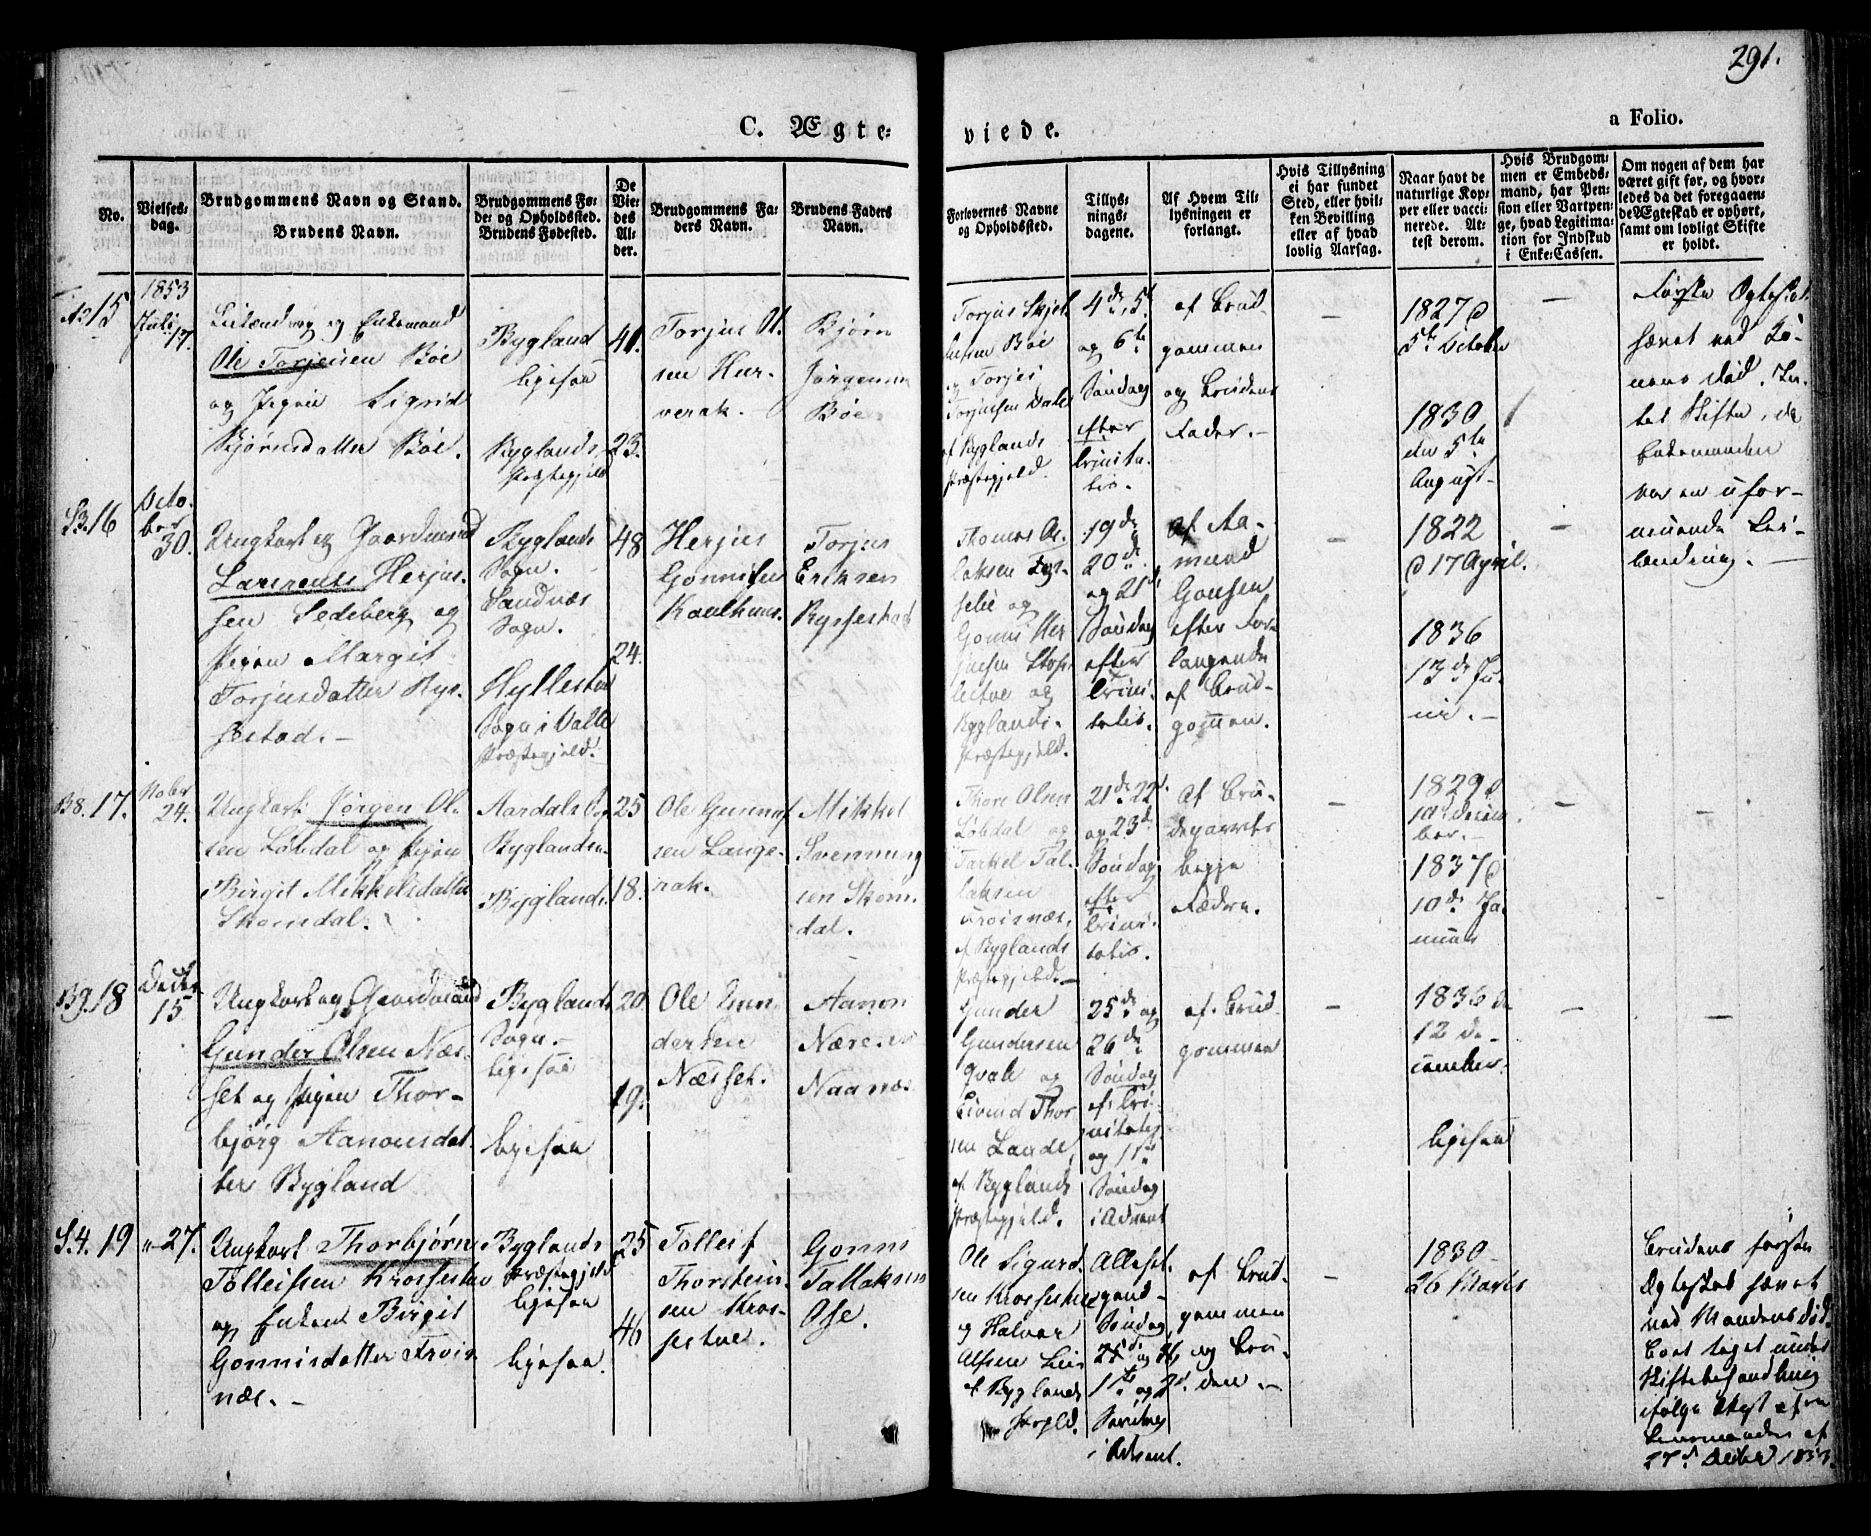 291.
C. Ægte-
viede.
a Folio.
No.
Vielses-
dag.
Brudgommens Navn og Stand.
Brudens Navn.
Brudgommens Fø-
de- og Opholdsted.
Brudens Fødested.
De
Vie-
des
Al-
der.
Brudgommens Fa-
ders Navn.
Brudens Faders
Navn.
Forlovernes Navne
og Opholdssted.
Tillys-
nings-
dagene.
Af Hvem Til-
lysningen er
forlangt.
Hvis Tillysning
ei har fundet
Sted, eller hvil-
ken Bevilling
eller af hvad
lovlig Aarsag.
Naar havt de
naturlige Kop-
per eller vacci-
nerede. At-
test derom.
Hvis Brudgom-
men er Embeds-
mand, har Pen-
sion eller Vartpen-
ge, hvad Legitima-
tion for Indskud
i Enke-Cassen.
Om nogen af dem har
været gift før, og hvor-
ledes da det foregaaen-
de Ægteskab er ophørt,
samt om lovligt Skifte
er holdt.
15
1853
Juli
17.
og Enkemand
Ole Torjesen Bøe
og Pigen Sigrid
Bjørnsdatter Bøe.
Bygland
ligesaa
Byglands
Præstegjeld
41.
23.
Torjus O.
sen Hur-
verak.
Bjørn
Jørgensen
Bøe
Torjus Skjel
Bøe
og Torjes
Torjusen
af Byglands
Præstegjeld.
4de, 5te
og 6te
Søndag
efter
Trinita-
tis.
af Brud-
gommen
og Brudens
Fader.-
1827 d
5te October
1830
den 5te
August
Første Ægteskab
hævet ved Ko-
nens Død. In-
tet Skifte, da
Enkemanden
var en ufor-
muende
S3. 16
Octo-
ber
30.
Ungkarl og Gaardmand
Herjus-
sen Sedeberg og
Pigen Margit
Torjusdatter Rys-
sestad.-
Byglands
Sogn.
Sandnæs
Sogn.
Hyllestad
Sogn i Valle
Præstegjeld.
48
24.
Herjus
Gonnisen
Kaalhuus.
Torjus
Eriksen
Ryssestad
Thomas As-
laksen
og
Gonni Her
juesen
og
Byglands
Præstegjeld.
19de
20de
og 21de
Søndag
efter
Trini-
tatis.
af Aa-
mund
Gonsen
efter For-
langende
af Brud-
gommen.
1822
d 17 April.
1836
13de Ju-
ni.-
B8. 17.
Nober
24.
Ungkarl Jørgen Ol-
sen Løbdal og Pigen
Birgit Mikkelsdatter
Skomdal.
Aardals Sogn
Byglands
Byglands
25
18.
Ole Gunnuf-
sen Lange-
rak.
Mikkel
Svennung-
sen Skom-
dal.
Thore Olsen
Løbdal og
Tarkel Tal-
laksen
Froisnæs,
af Byglands
Præstegjeld.-
21de 22de
og 23de
Søndag
efter
Trini-
tatis.
Af Bru-
deparrets
begge
Fædre.
1829 d
10de Decem-
ber.-
1837 d
10de Ja-
nuar
B9. 18
Decbr
15
Ungkarl og Gaardmand
Gunder Olsen Næs-
set og Pigen Thor-
bjørg Aanonsdat-
ter Bygland
Byglands
Sogn.-
ligesaa
ligesaa
20
19.
Ole Gun-
dersen
Næsset.
Aanon
Næresen
Naanæs
Gunder
Gundersen
Qvale og
Eivind Thor
sen Lande,
af Byglands
Præstegjeld.
25de og
26de
Søndag
ef. Tri-
nitatis
og 1ste
Søndag
i Advent
af Brud-
gommen
1836 de
12 De-
cember.
ligesaa
S.4. 19
" 27.
Ungkarl Thorbjørn
Tolleifsen Krossestue
og Enken Birgit
Gonnisdatter Frois-
næs.-
Byglands
Præstegjeld
ligesaa
ligesaa
25
46
Tolleif
Thorstein-
sen Kros-
sestue.
Gonni
Tallaksen
Ose.
Ole Sigurd-
sen Krossestue
og Halvor
Alfsen Liis
af Byglands
Søndag
1ste og 2de
Søndag
i Advent.
af Brud-
gommen
og Bru-
den.-
1830
26 Marts
Brudens første
Ægteskab hævet
ved Mandens Død
Boet taget under
Skiftebehandling
ifølge Skyst
Lensmanden af
27de Decbr 1853.